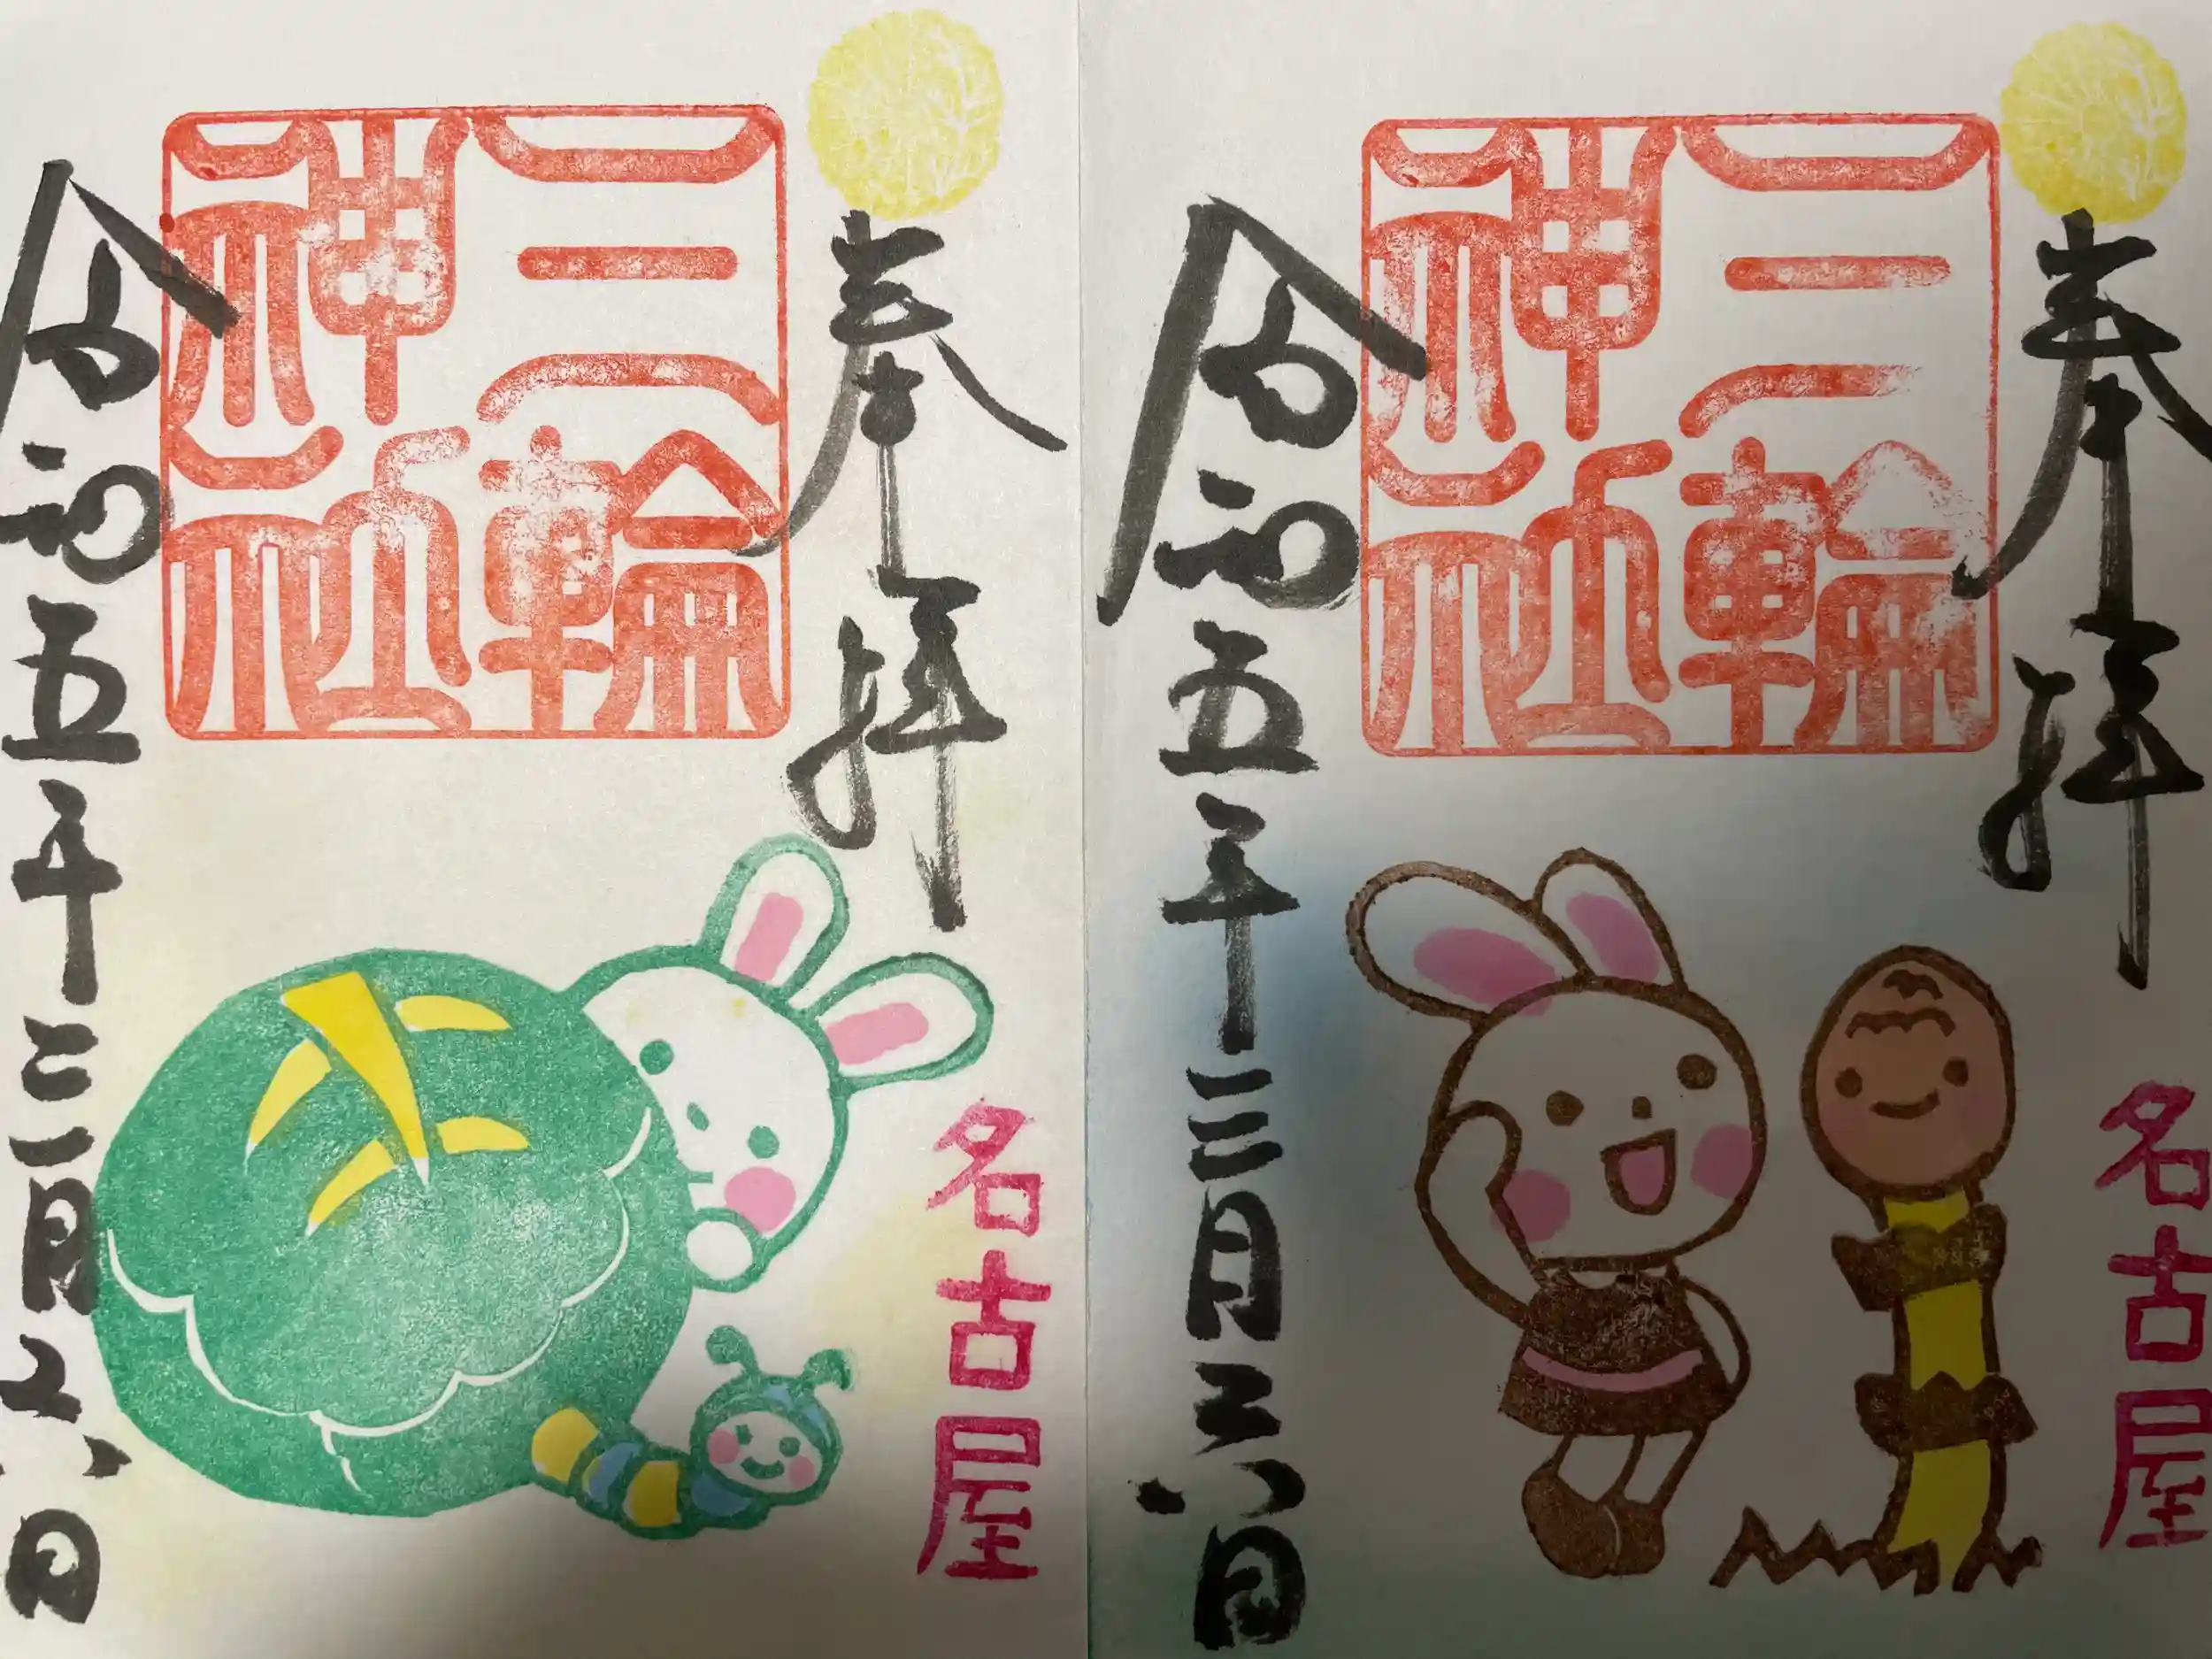 奉拝
三輪
神社
名古屋
令和五年三月六日
奉拝
三輪
神社
名古屋
令和五年三月六日